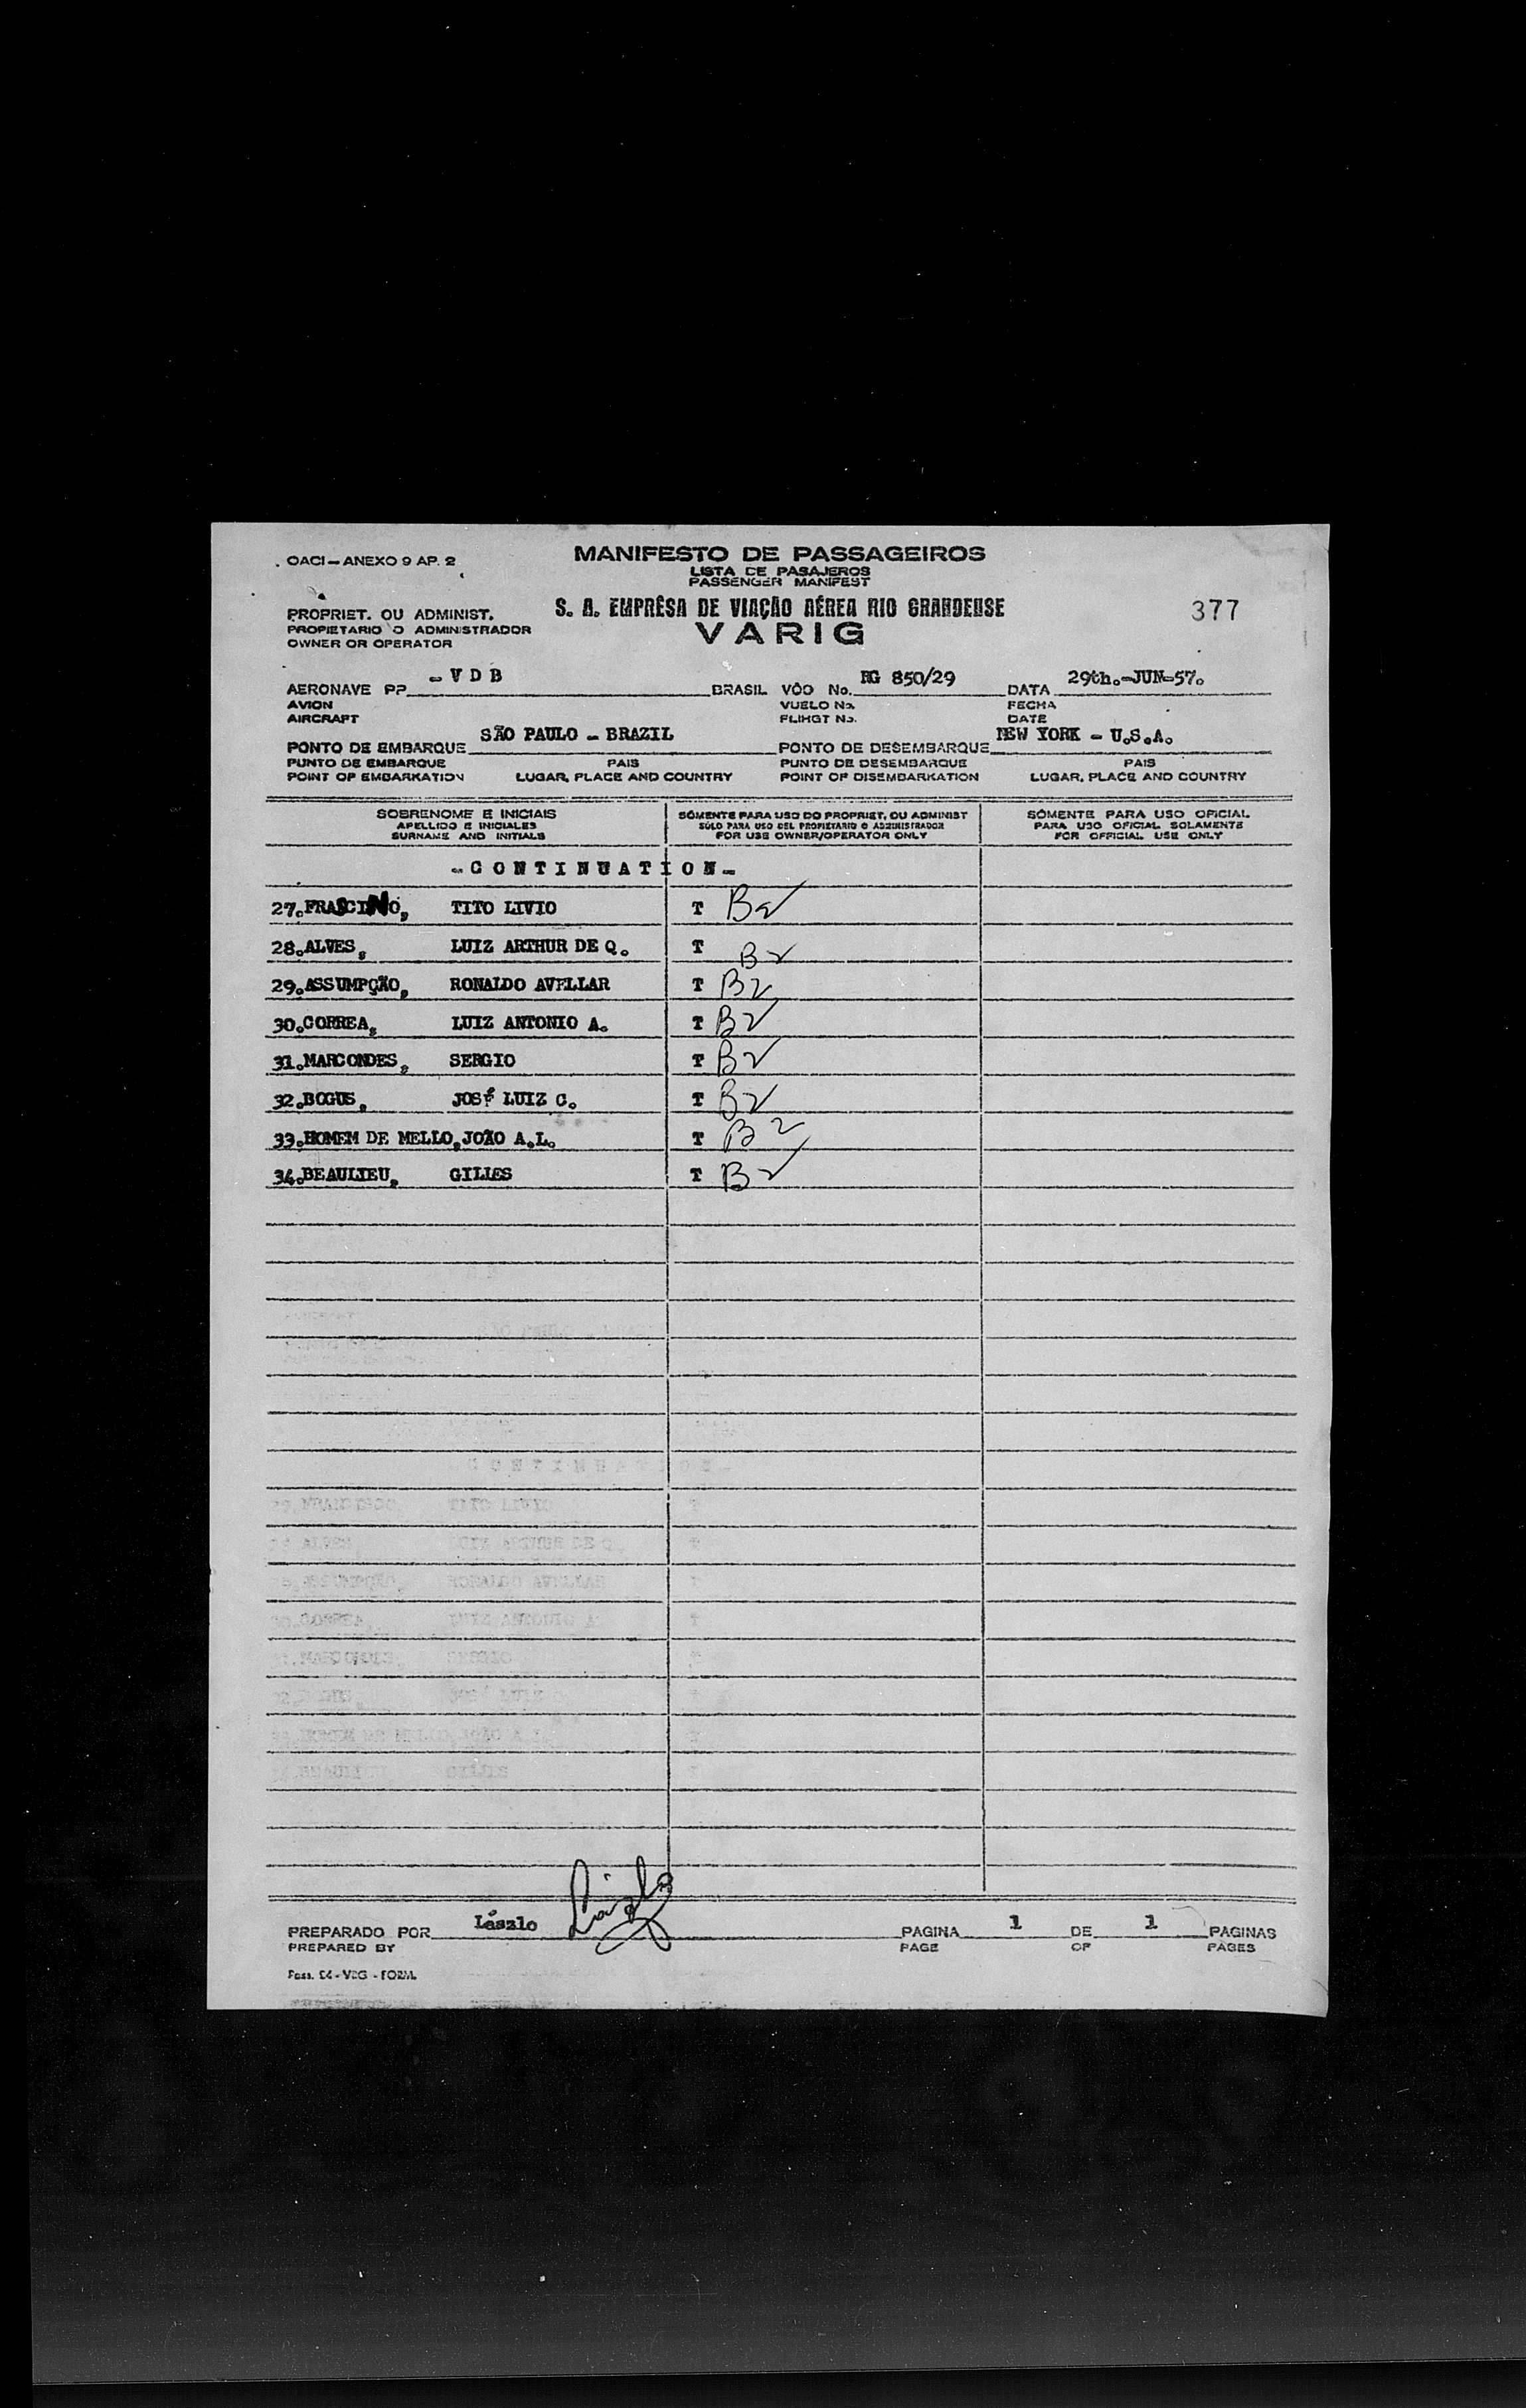 OACI — ANEXO 9 AP. 2
MANIFESTO DE PASSAGEIROS
LISTA DE PASAJEROS
PASSENGER MANIFEST
PROPRIET. OU ADMINIST.
PROPIETARIO O ADMINISTRADOR
OWNER OR OPERATOR
S. A. EMPRÊSA DE VIAÇÃO AÉREA RIO GRANDENSE
VARIG
377
AERONAVE PP - V D B BRASIL VÔO No. RG 850/29 DATA 29th.-JUN-57.
AVION VUELO No. FECHA
AIRCRAFT FLIHGT No. DATE
PONTO DE EMBARQUE SÃO PAULO - BRAZIL PONTO DE DESEMBARQUE NEW YORK - U.S.A.
PUNTO DE EMBARQUE PAIS PUNTO DE DESEMBARQUE PAIS
POINT OF EMBARKATION LUGAR, PLACE AND COUNTRY POINT OF DISEMBARKATION LUGAR, PLACE AND COUNTRY
SOBRENOME E INICIAIS SÓMENTE PARA USO DO PROPRIET, OU ADMINIST SÓMENTE PARA USO OFICIAL
APELLIDO E INICIALES SÓLO PARA USO DEL PROPIETARIO O ADMINISTRADOR PARA USO OFICIAL SOLAMENTE
SURNAME AND INITIALS FOR USE OWNER/OPERATOR ONLY FOR OFFICIAL USE ONLY
- C O N T I N U A T I O N -
27.FRASCINO, TITO LIVIO T B2
28.ALVES, LUIZ ARTHUR DE Q. T B2
29.ASSUMPÇÃO, RONALDO AVELLAR T B2
30.CORREA, LUIZ ANTONIO A. T B2
31.MARCONDES, SERGIO T B2
32.BOGUS, JOSÉ LUIZ C. T B2
33.HOMEM DE MELLO,JOÃO A.L. T B2
34.BEAULIEU, GILLES T B2
PREPARADO POR Lászlo Lászlo PAGINA 1 DE 1 PAGINAS
PREPARED BY PAGE OF PAGES